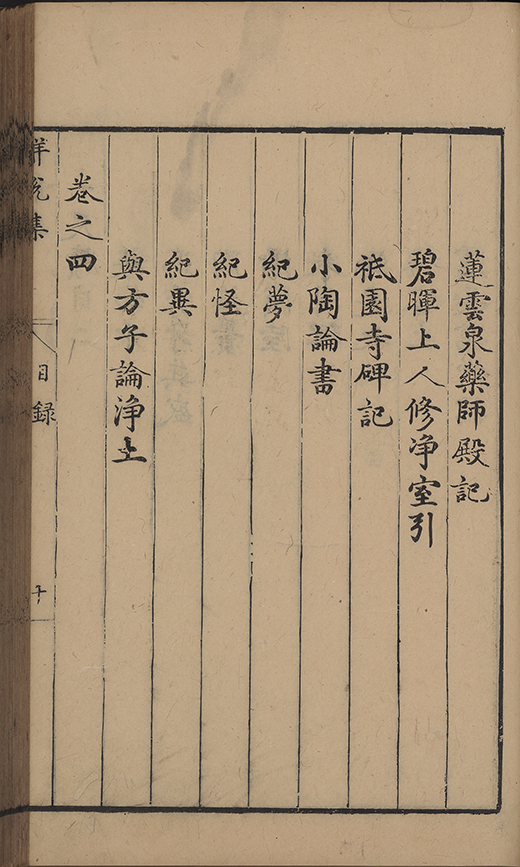 蓮雲泉藥師殿記
碧暉上人修净室引
祇園寺碑記
小陶論書
紀夢
紀怪
紀異
與方子論净土
卷之四
集
目錄